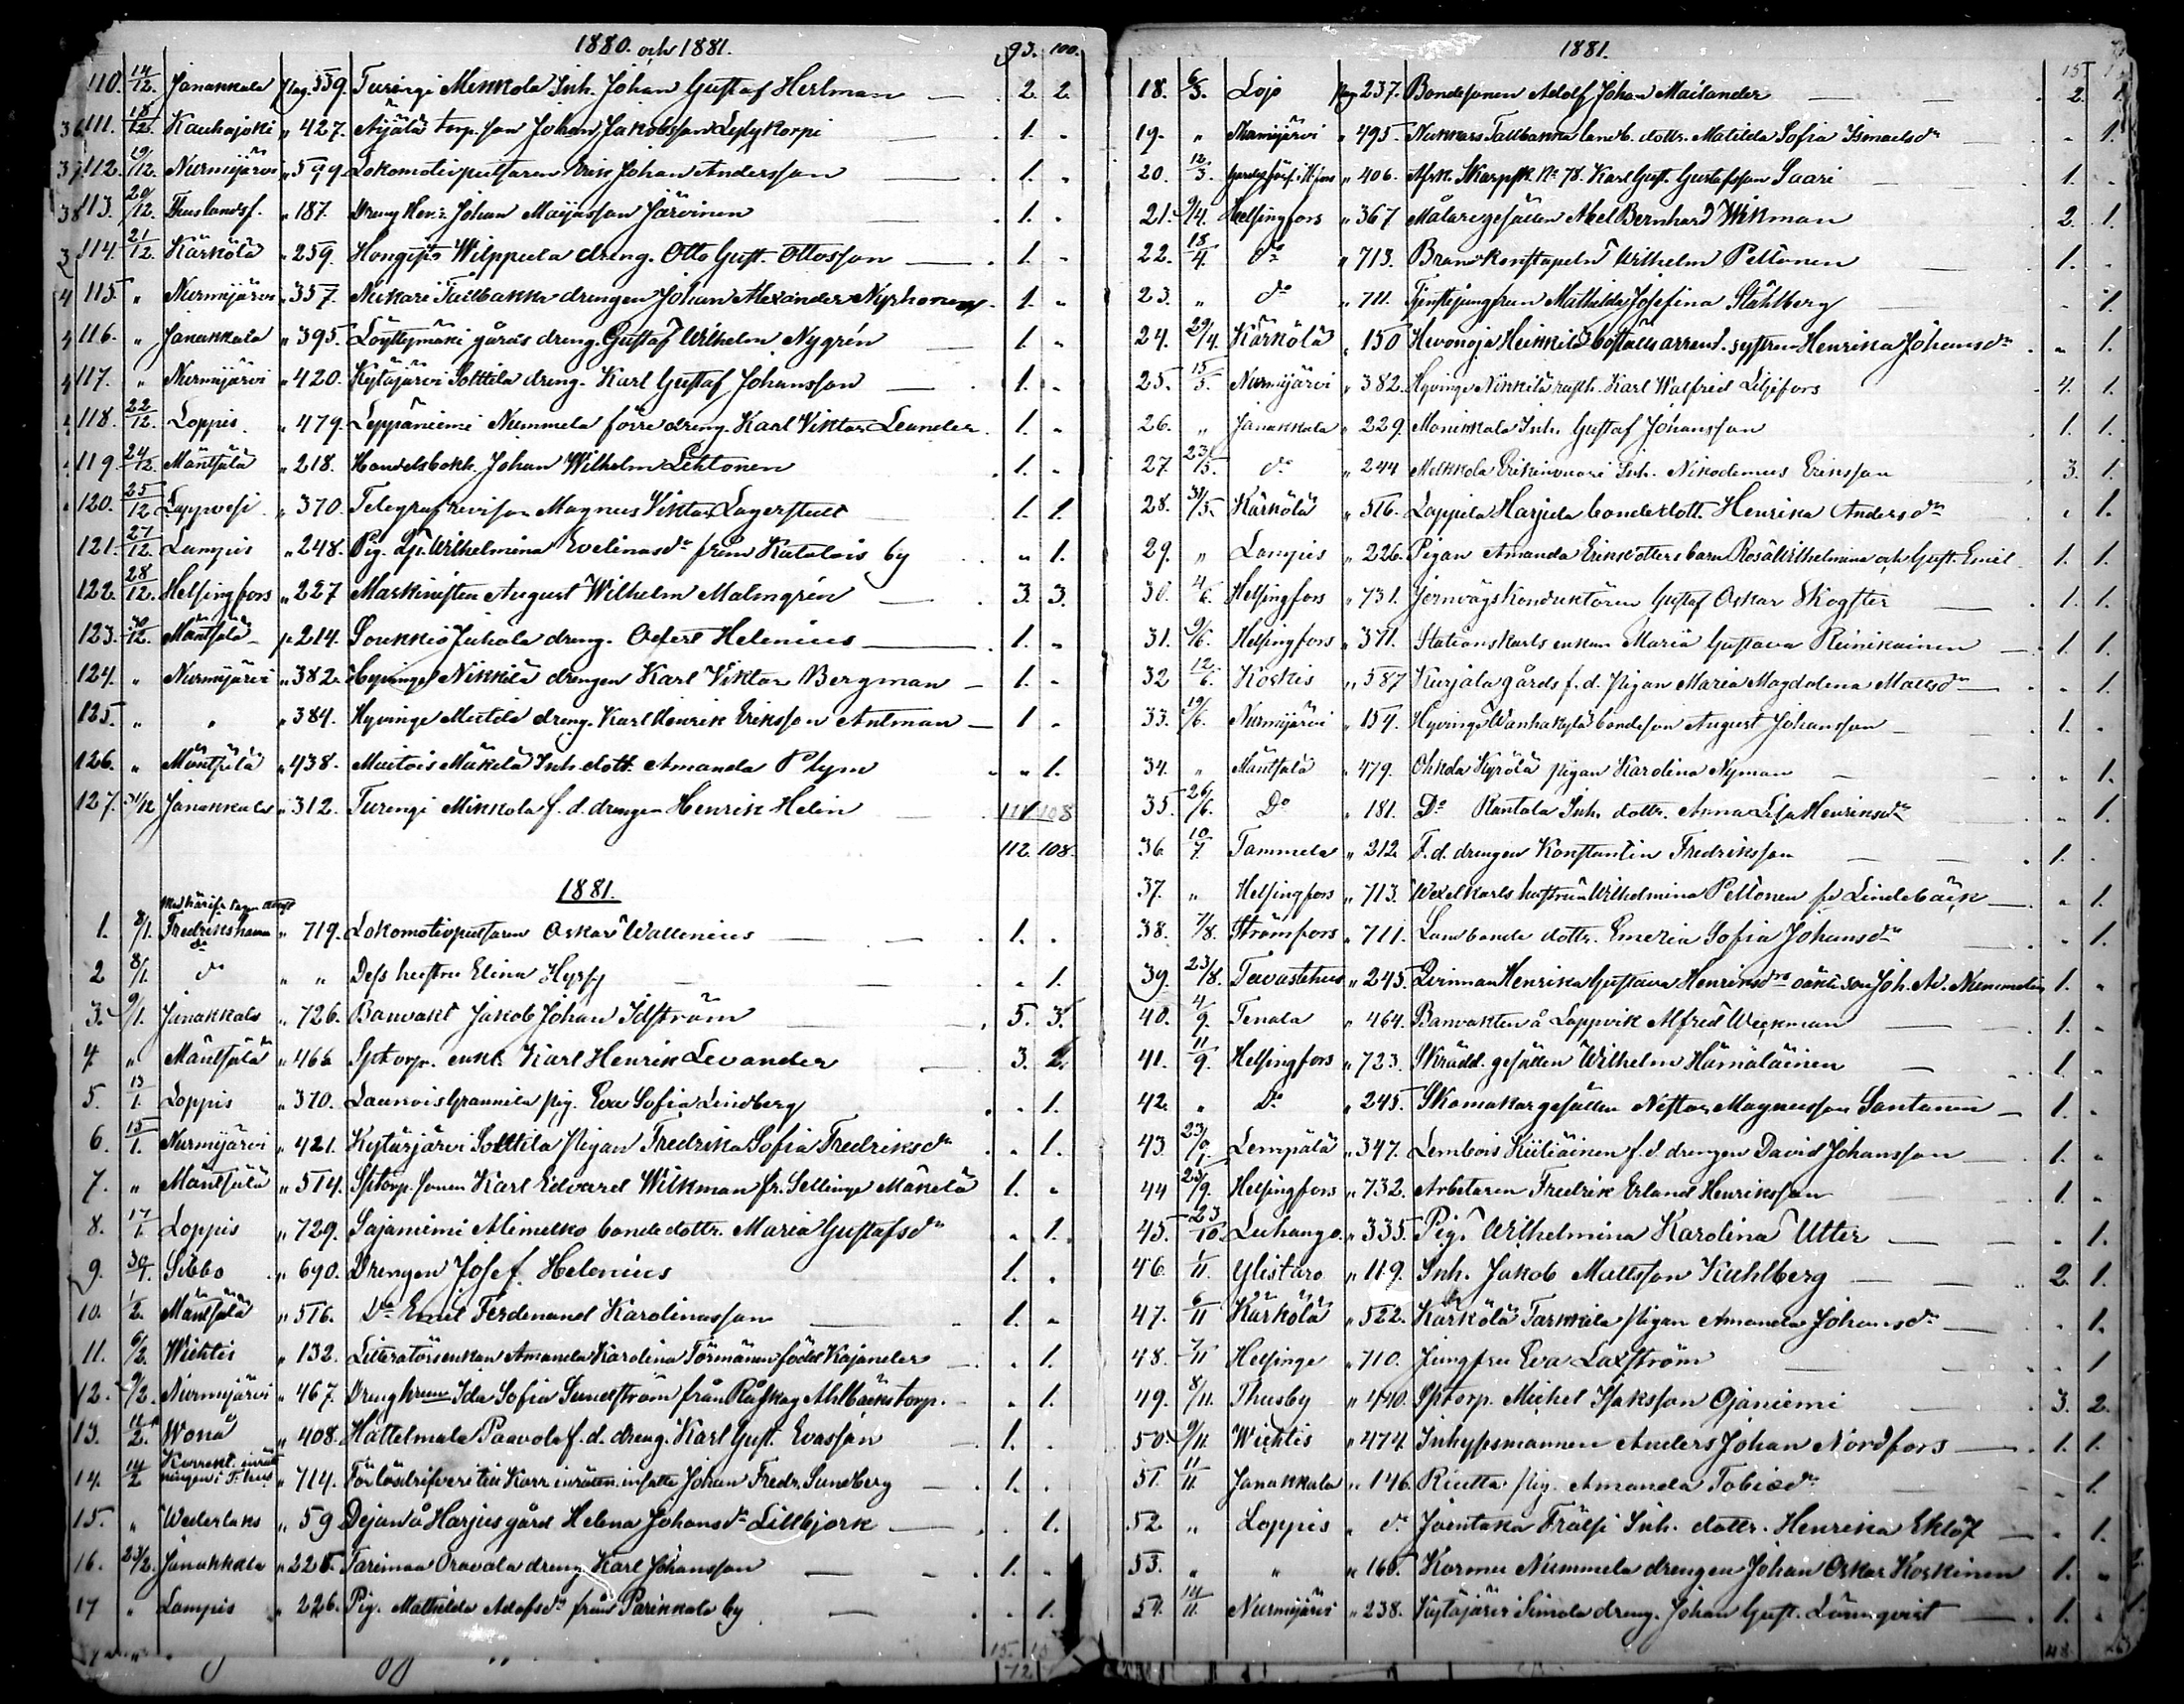 1880. och 1881. 93. 100.
110. 14/12. Janakkala pag. 559. Turengi Mikkola Inh. Johan Gustaf Herlman 2. 2.
111. 18/12. Kauhajoki " 427. torp. son Johan Jakobsson 1. "
112. 19/12. Nurmijärvi " 599. Lokomotivputsaren Erik Johan Andersson 1. "
113. 20/12. Thuslandsf. " 187. Dreng Henr. Johan Maijasson Järvinen 1. "
114. 21/12. Kärkölä " 259. Hongisto Wilppula dreng. Otto Gust. Ottosson 1. "
115. " Nurmijärvi " 357. Nukari Tallbakka drengen Johan Alexander Nyrhonen 1. "
116. " Janakkala " 395. Löyttymäki gårds dreng. Gustaf Wilhelm Nygrén 1. "
117. " Nurmijärvi " 420. Kytäjärvi Solttila dreng. Karl Gustaf Johansson 1. "
118. 22/12. Loppis " 479. Leppäniemi Nummela förre dreng. Karl Viktor Leander 1. "
119. 24/12. Mäntsälä " 218. Handelsbokh. Johan Wilhelm Lehtonen 1. "
120. 25/12 Lappvesi " 370. Telegrafrevisorn Magnus Viktor Lagerstedt 1. 1.
121. 27/12. Lampis " 248. Pig. Wilhelmina Evelinasdr från Katalois by " 1.
122. 28/12. Helsingfors " 227 Maskinisten August Wilhelm Malmgrén 3. 3.
123. 30/12. Mäntsälä p. 214. Soukkio Juhola dreng. Helenius 1. "
124. " Nurmijärvi " 382. Hyvinge Nikkilä drengen Karl Viktor Bergman 1. "
125. " " " 384. Hyvinge dreng. Karl Henrik Eriksson Antman 1 "
126. " Mäntsälä " 438. Mäkelä Inh. dott. Amanda Plym " 1.
127. 31/12 Janakkala " 312. Turengi Mikkola f. d. drengen Henrik Helin 111 108
112. 108.
1881.
1. 8/1. Fredrikshamn " 719. Lokomotivputsaren Oskar Wallenius 1. .
2 8/1. do " " Dess hustru Elina " 1.
3. 9/1. Janakkala " 726. Banvakt Jakob Johan Idström 5. 3.
4 " Mäntsälä " 466 Sptorp. enkl. Karl Henrik Levander 3. 2.
5. 13/1. Loppis " 370. Launois pig. Eva Sofia Lindberg . 1.
6. 15/1. Nurmijärvi " 421. Kytäjärvi Solttila pigan Fredrika Sofia Fredriksdr . 1.
7. " Mäntsälä " 514. Sptorp. sonen Karl Edvard Wikman fr. Sellinge Mäkelä 1. "
8. 17/1. Loppis " 729. Sajaniemi bonde dottr. Maria Gustafsdr . 1.
9. 30/1. Sibbo " 690. Drengen Josef Helenius 1. .
10. 1/2. Mäntsälä " 516. Do Emil Ferdinand Karolinasson 1. "
11. 6/2. Wichtis " 132. Amanda Karolina Törmänen född Kajander . 1.
12. 9/2. Nurmijärvi " 467. Ida Sofia Sundström från Ahlbackstorp. . 1.
13. 12/2. " 408. Hattelmala Paavola f. d. dreng. Karl Gust. Evasson 1. .
14. 14/2 Korrekt. inrättningen i T:hus " 714. Johan Fredr. Sundberg 1. .
15. " Wederlaks " 59 Dejan å Harjus gård Helena Johansdr Lillbjork . 1.
16. 23/2. Janakkala " 225. Tarinmaa Oravala dreng Karl Johansson 1. "
17 " Lampis " 226. Pig. Mathilda Adofsdr från Parikkala by . 1.
15. 15
1881.
18. 6/3. Lojo pag 237. Bondesonen Adolf Johan Mailander 2. 1.
19. " Nurmijärvi " 495. Nukkars Tallbakka landb. dottr. Matilda Sofia Ismaelsdr " 1.
20. 12/3. " 406. Afsk. Skarpsk. No 78. Karl Gust. Gustafsson Saari 1. "
21. 9/4. Helsingfors " 367 Målaregesällen Abel Bernhard Wikman 2. 1.
22. 18/4. do " 713. Brandkonstapeln Wilhelm Peltonen 1. .
23. " do " 711. Tjenstejungfrun Mathilda Josefina Ståhlberg . 1.
24. 29/4. Kärkölä " 150 Hevonoja Heikkilä boställs arrend. systern Henrika Johansdr " 1.
25. 15/5. Nurmijärvi " 382. Hyvinge Nikkilä Karl Walfrid Liljefors 4. 1.
26. " Janakkala " 229. Monikkala Inh. Gustaf Johansson 1. 1.
27. 23/5. do " 244 Melkkola Inh. Nikodemus Eriksson 3. 1.
28. 31/5. Kärkölä " 516. Lappila Harjula bondedott. Henrika Andersdr . 1.
29. " Lampis " 226. Pigan Amanda Eriksdotters barn Rosa Wilhelmina och Gust. Emil 1. 1.
30. 4/6. Helsingfors " 731. Jernvägskonduktören Gustaf Oskar Skogster 1. 1.
31. 9/6. Helsingfors " 371. Stationskarls enkan Maria Gustava Reinikainen 1. 1.
32 12/6. Koskis " 587 Kurjala gårds f. d. pigan Maria Magdalena Mattsdr . 1.
33. 19/6. Nurmijärvi " 154. Hyvinge Wanhakylä bondeson August Johansson 1. .
34. " Mäntsälä " 479. Ohkola Kyrölä pigan Karolina Nyman . 1.
35. 26/6. Do " 181. Do Rantala Inh. dottr. Anna Lisa Henriksdr . 1.
36 10/7. Tammela " 212. F. d. drengen Konstantin Fredriksson 1. .
37. " Helsingfors " 713. Wexelkarls hustrun Wilhelmina Peltonen fd Lindebäck " 1.
38. 7/8. Strömfors " 711. Landbonde dottr. Emeria Sofia Johansdr . 1.
39. 23/8. Tavastehus " 245. Qvinnan Henrika Gustava Henriksdrs oäkta son Joh. Ad. Nummelin 1. "
40. 4/9. Tenala " 464. Banvakten å Lappvik Alfred Weckman 1. "
41. 11/9. Helsingfors " 723. Skrädd. gesällen Wilhelm Hämäläinen 1. "
42. " Do " 245. Skomakargesällen Nestor Magnusson Santanen 1. "
43. 23/9. Lempälä " 347. Lembois f. d. drengen David Johansson 1. "
44 25/9. Helsingfors " 732. Arbetaren Fredrik Erland Henriksson 1. "
45. 23/10. Luhango " 335. Pig. Wilhelmina Karolina Utter . 1.
46. 1/11. Ylistaro " 119. Inh. Jakob Mattsson Kuhlberg 2. 1.
47. 6/11 Kärkölä " 522. Kärkölä Tarkkila pigan Amanda Johansdr . 1.
48. 7/11 Helsinge " 710. Jungfru Eva Laxström . 1
49. 8/11. Thusby " 440. Sptorp. Michel Isaksson Ojaniemi 3. 2.
50. 9/11. Wichtis " 474. Inhysesmannen Anders Johan Nordfors 1. 1.
51. 11/11. Janakkala " 146. Riutta pig. Amanda Tobiasdr . 1.
52. " Loppis " do Joentaka Frälsi Inh. dottr. Henrika Eklöf " 1.
53. " " " 160. Kormu Nummela drengen Johan Oskar Koskinen 1. "
54. 14/11. Nurmijärvi " 238. Kytäjärvi Simola dreng. Johan Gust. Lönnqvist 1. "
48.